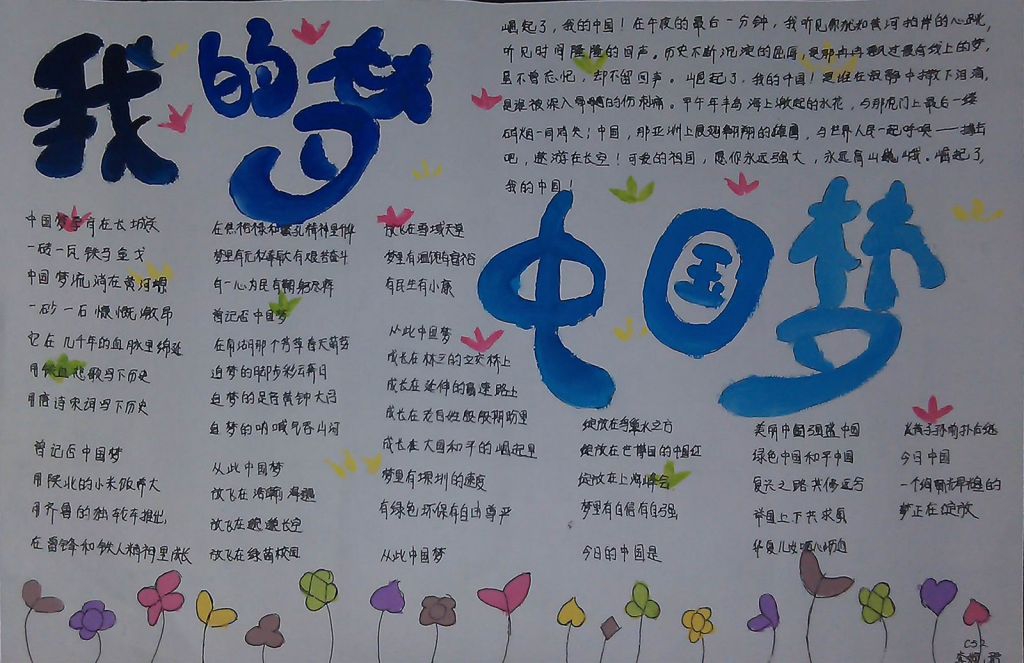 我的梦
中国梦
崛起了,我的中国!在午夜的最后一分钟,我听见你犹如黄河拍岸的心跳,
听见时间隆隆的回声。历史不断沉淀的
虽不曾忘记,却不留回声。崛起了,我的中国!是谁在寂静中撒下泪滴,
是谁被深入骨髓的伤刺痛。甲午年半岛海上激起的水花,与那虎门上最后一缕
硝烟一同消失!中国,那亚洲上展翅翱翔的雄鹰,与世界人民一起呼唤——搏击
吧,遨游在长空!可爱的祖国,愿你永远强大,永远高山巍峨。崛起了,
我的中国!
中国梦孕育在长城
一砖一瓦铁马金戈
中国梦流淌在黄河
一砂一石慷慨激昂
它在几千年的血脉里绵延
用铁血悲歌写下历史
用唐诗宋词写下历史
曾记否中国梦
用陕北的小米饭养大
用齐鲁的独轮车推出
在雷锋和铁人精神里成长
在焦裕禄和孔精神里
梦里有艰苦奋斗
有一心为民有鞠躬尽瘁
曾记否中国梦
在南湖那个春天萌芽
追梦的脚步彩云
追梦的足音黄钟大吕
追梦的呐喊气吞山河
从此中国梦
放飞在浩瀚
放飞在长空
放飞在绿茵校园
放飞在雪域天堂
梦里有温饱有富裕
有民生有小康
从此中国梦
成长在林立的立交桥上
成长在延伸的高速路上
成长在老百姓殷殷期盼里
成长在大国和平的崛起里
梦里有深圳的速度
有绿色环保有自由尊严
从此中国梦
绽放在鸟巢水立方
绽放在世博园的中国红
绽放在上海峰会
梦里有自信有自强
今日的中国是
美丽中国强盛中国
绿色中国和平中国
复兴之路
举国上下共求
华夏儿女
今日中国
一个
梦正在绽放